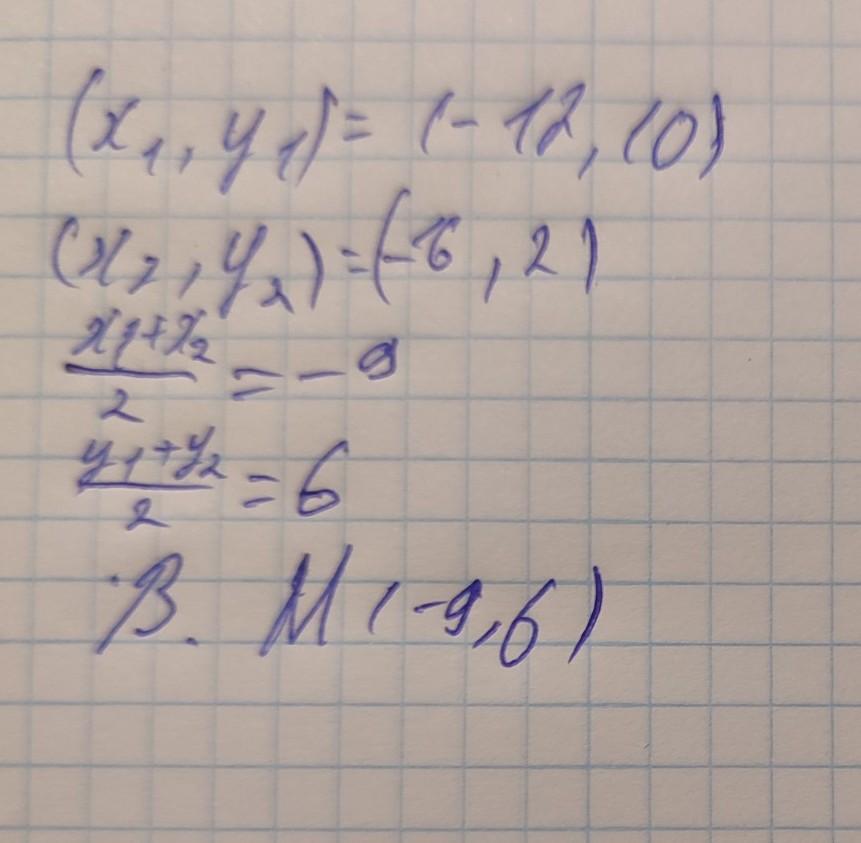 (x₁, y₁) = (-12, 10)
(x₂, y₂) = (-6, 2)
x₁+x₂/2 = -9
y₁+y₂/2 = 6
B. M (-9,6)